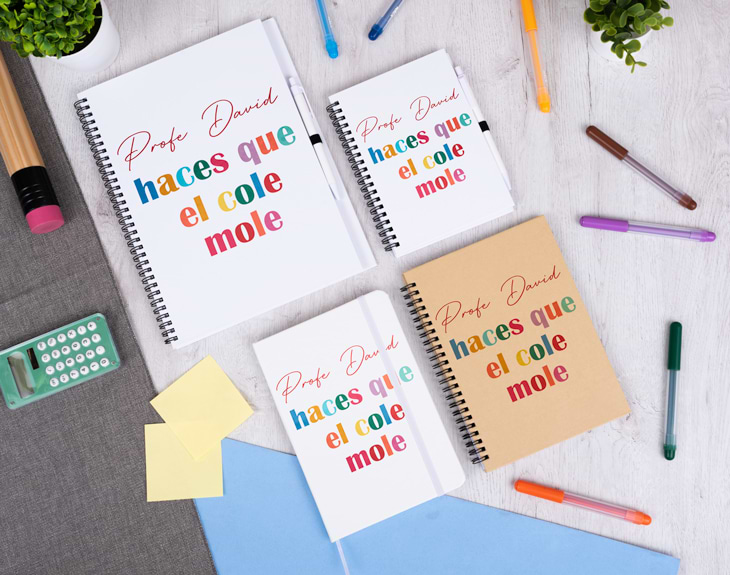 Profe David
haces que
el cole
mole
Profe David
haces que
el cole
mole
Profe David
haces que
el cole
mole
Profe David
haces que
el cole
mole